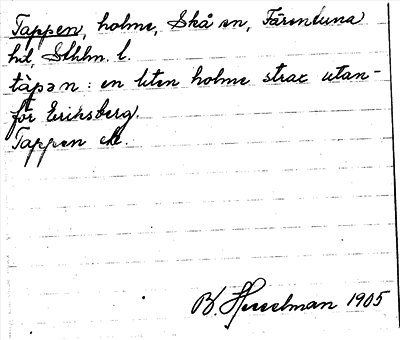 Tappen, holme, Skå sn, Färentuna
hd, Sthlm. l.
tàpən: en liten holme strax utan-
för Eriksberg.
Tappen
B. Hesselman 1905